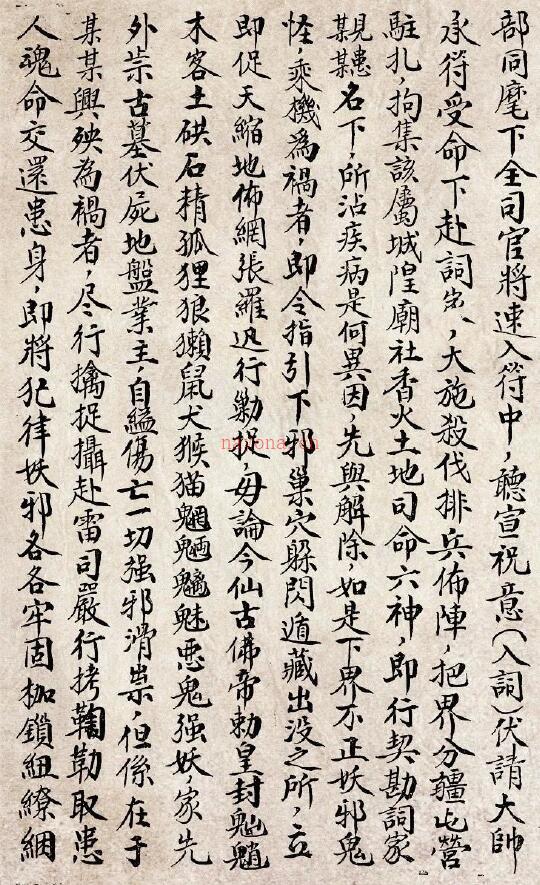 部同麾下全司官將速入符中，聽宣祝意（入詞）伏請大帥
承符受命下赴詞出，大施殺伐排兵佈陣，把界分疆屯營
駐扎，拘集該屬城隍廟社香火土地司命六神，即行契勘詞家
某親某患名下，所沾疾病是何異因，先與解除，如是下界不正妖邪鬼
怪，乘機為禍者，即令指引下邪巢穴躲閃遁藏出没之所，立
即促天縮地佈網張羅迅行勦捉，毋論今仙古佛帝勅皇封魈魈
木客土硔石精狐狸狼獺鼠犬猴猫魍魎魑魅惡鬼强妖，家先
外祟古墓伏屍地盤業主，自縊傷亡一切强邪滑祟，但係在于
某某興殃為禍者，尽行擒捉攝赴雷司嚴行拷鞫勒取患
人魂命交還患身，即將犯律妖邪各各牢固枷鎖紐繚綑